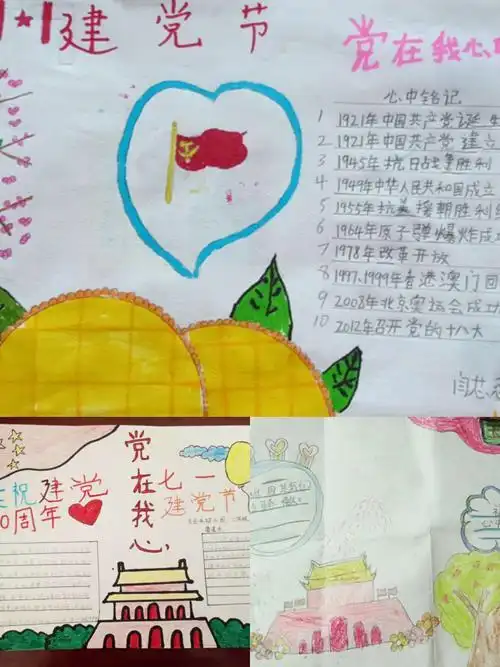 建党节
党在我心
心中铭记
1 1921年中国共产党诞生
2 1921年中国共产党建立
3 1945年抗日战争胜利
4 1949年中华人民共和国成立
5 1955年抗美援朝胜利
6 1964年原子弹爆炸成
7 1978年改革开放
8 1997.1999年香港澳门回
9 2008年北京奥运会成功
10 2012年召开党的十八大
祝建党
0周年
党在我心
七一
建党节